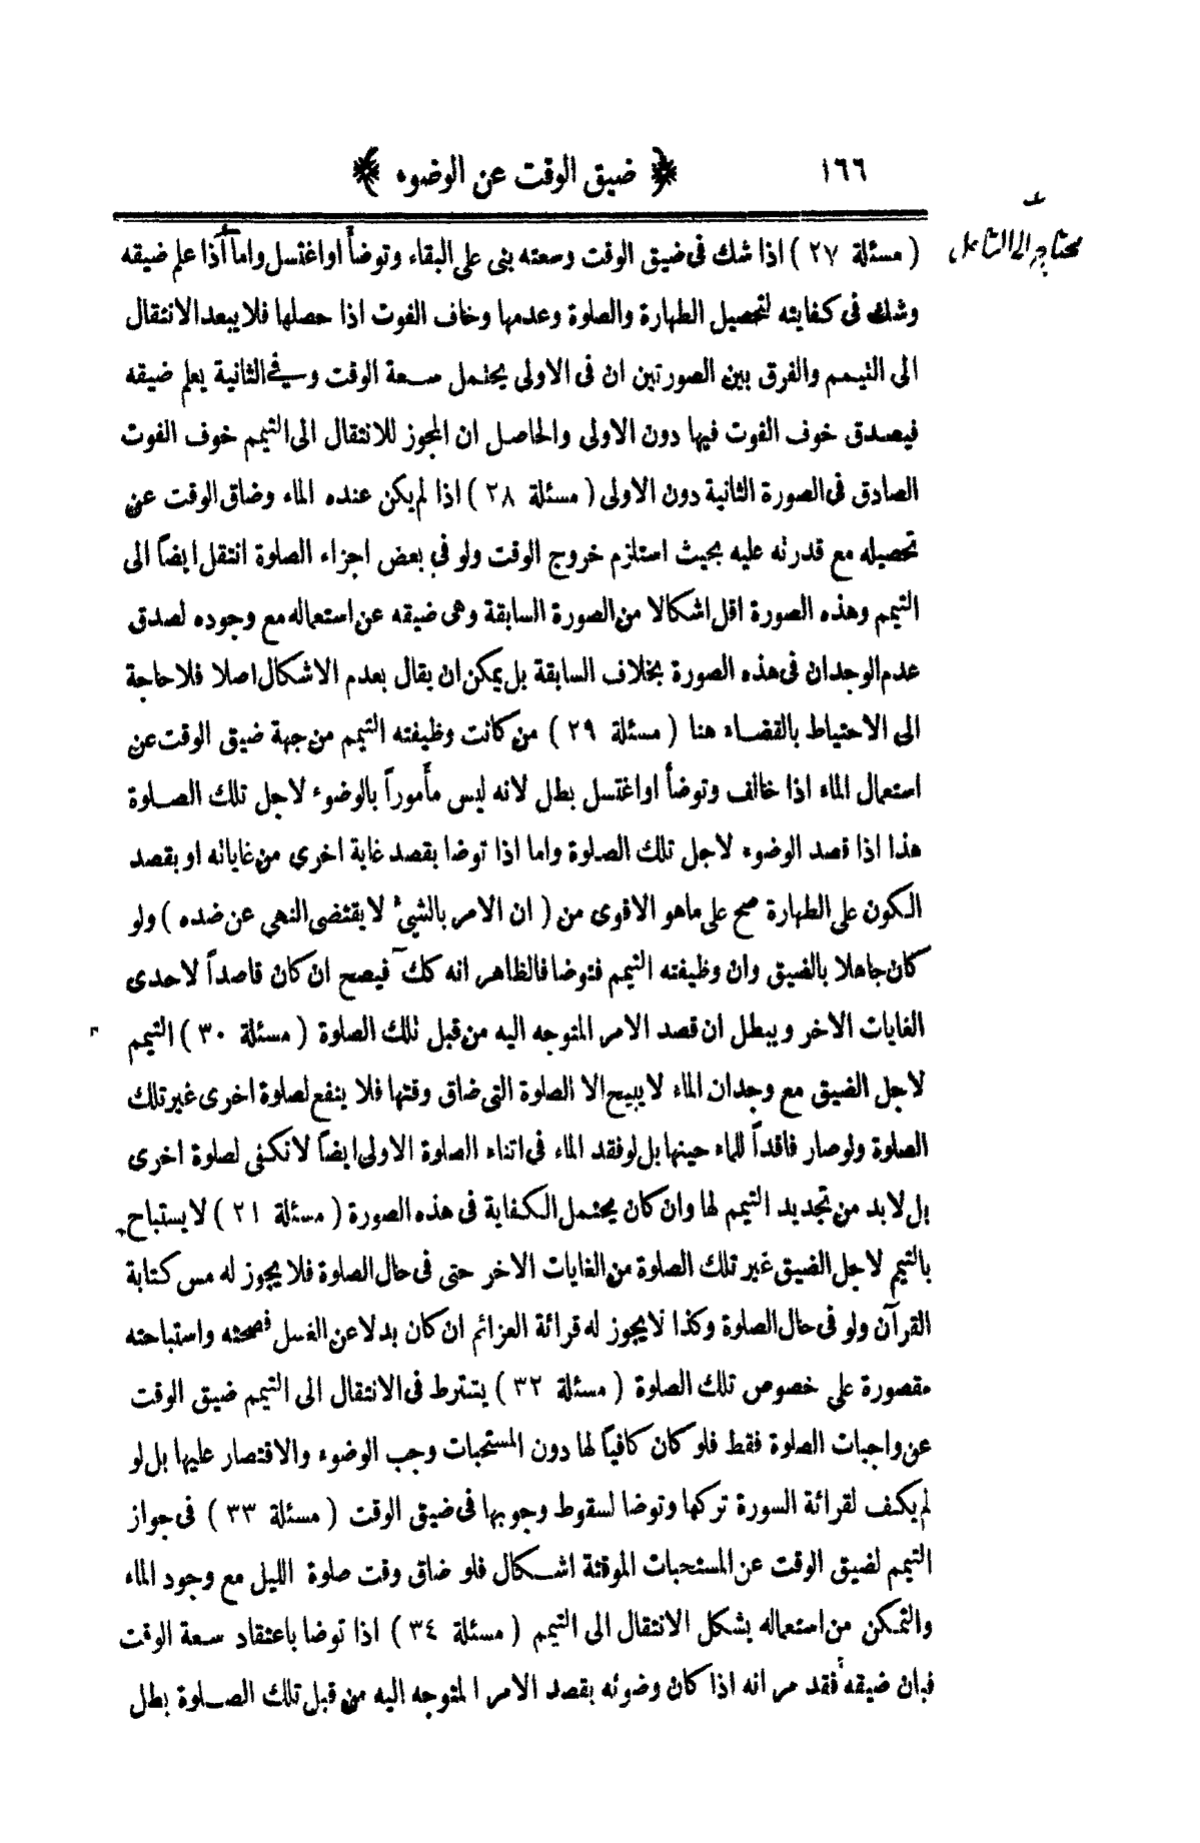 ١٦٦
﴿ ضيق الوقت عن الوضوء ﴾
محتاج الى التأمل
( مسئلة ٢٧ ) اذا شك فى ضيق الوقت وسعته بنى على البقاء وتوضأ او اغتسل واما اذا علم ضيقه
وشك فى كفايته لتحصيل الطهارة والصلوة وعدمها وخاف الفوت اذا حصلها فلا يبعد الانتقال
الى التيمم والفرق بين الصورتين ان فى الاولى يحتمل سعة الوقت وفي الثانية يعلم ضيقه
فيصدق خوف الفوت فيها دون الاولى والحاصل ان المجوز للانتقال الى التيمم خوف الفوت
الصادق فى الصورة الثانية دون الاولى ( مسئلة ٢٨ ) اذا لم يكن عنده الماء وضاق الوقت عن
تحصيله مع قدرته عليه بحيث استلزم خروج الوقت ولو في بعض اجزاء الصلوة انتقل ايضاً الى
التيمم وهذه الصورة اقل اشكالا من الصورة السابقة وهى ضيقه عن استعماله مع وجوده لصدق
عدم الوجدان فى هذه الصورة بخلاف السابقة بل يمكن ان يقال بعدم الاشكال اصلا فلا حاجة
الى الاحتياط بالقضاء هنا ( مسئلة ٢٩ ) من كانت وظيفته التيمم من جهة ضيق الوقت عن
استعمال الماء اذا خالف وتوضأ او اغتسل بطل لانه ليس مأموراً بالوضوء لاجل تلك الصلوة
هذا اذا قصد الوضوء لاجل تلك الصلوة واما اذا توضا بقصد غاية اخرى من غاياته او بقصد
الكون على الطهارة صح على ماهو الاقوى من ( ان الامر بالشيء لا يقتضى النهي عن ضده ) ولو
كان جاهلا بالضيق وان وظيفته التيمم فتوضا فالظاهر انه كك فيصح ان كان قاصداً لاحدى
الغايات الاخر ويبطل ان قصد الامر المتوجه اليه من قبل تلك الصلوة ( مسئلة ٣٠ ) التيمم
لاجل الضيق مع وجدان الماء لا يبيح الا الصلوة التى ضاق وقتها فلا ينفع لصلوة اخرى غير تلك
الصلوة ولو صار فاقداً للماء حينها بل لو فقد الماء فى اثناء الصلوة الاولى ايضاً لا تكفى لصلوة اخرى
بل لا بد من تجديد التيمم لها وان كان يحتمل الكفاية فى هذه الصورة ( مسئلة ٢١ ) لا يستباح
بالتيمم لاجل الضيق غير تلك الصلوة من الغايات الاخر حتى فى حال الصلوة فلا يجوز له مس كتابة
القرآن ولو فى حال الصلوة وكذا لا يجوز له قرائة العزائم ان كان بدلا عن الغسل فصحته واستباحته
مقصورة على خصوص تلك الصلوة ( مسئلة ٣٢ ) يشترط فى الانتقال الى التيمم ضيق الوقت
عن واجبات الصلوة فقط فلو كان كافياً لها دون المستحبات وجب الوضوء والاقتصار عليها بل لو
لم يكف لقرائة السورة تركها وتوضا لسقوط وجوبها فى ضيق الوقت ( مسئلة ٣٣ ) فى جواز
التيمم لضيق الوقت عن المستحبات الموقتة اشكال فلو ضاق وقت صلوة الليل مع وجود الماء
والتمكن من استعماله يشكل الانتقال الى التيمم ( مسئلة ٣٤ ) اذا توضا باعتقاد سعة الوقت
فبان ضيقه فقد مر انه اذا كان وضوئه بقصد الامر المتوجه اليه من قبل تلك الصلوة بطل